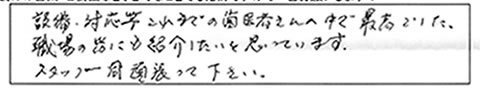 設備・対応等これまでの歯医者さんの中で最高でした。
職場の皆にも紹介したいと思っています。
スタッフ一同頑張って下さい。